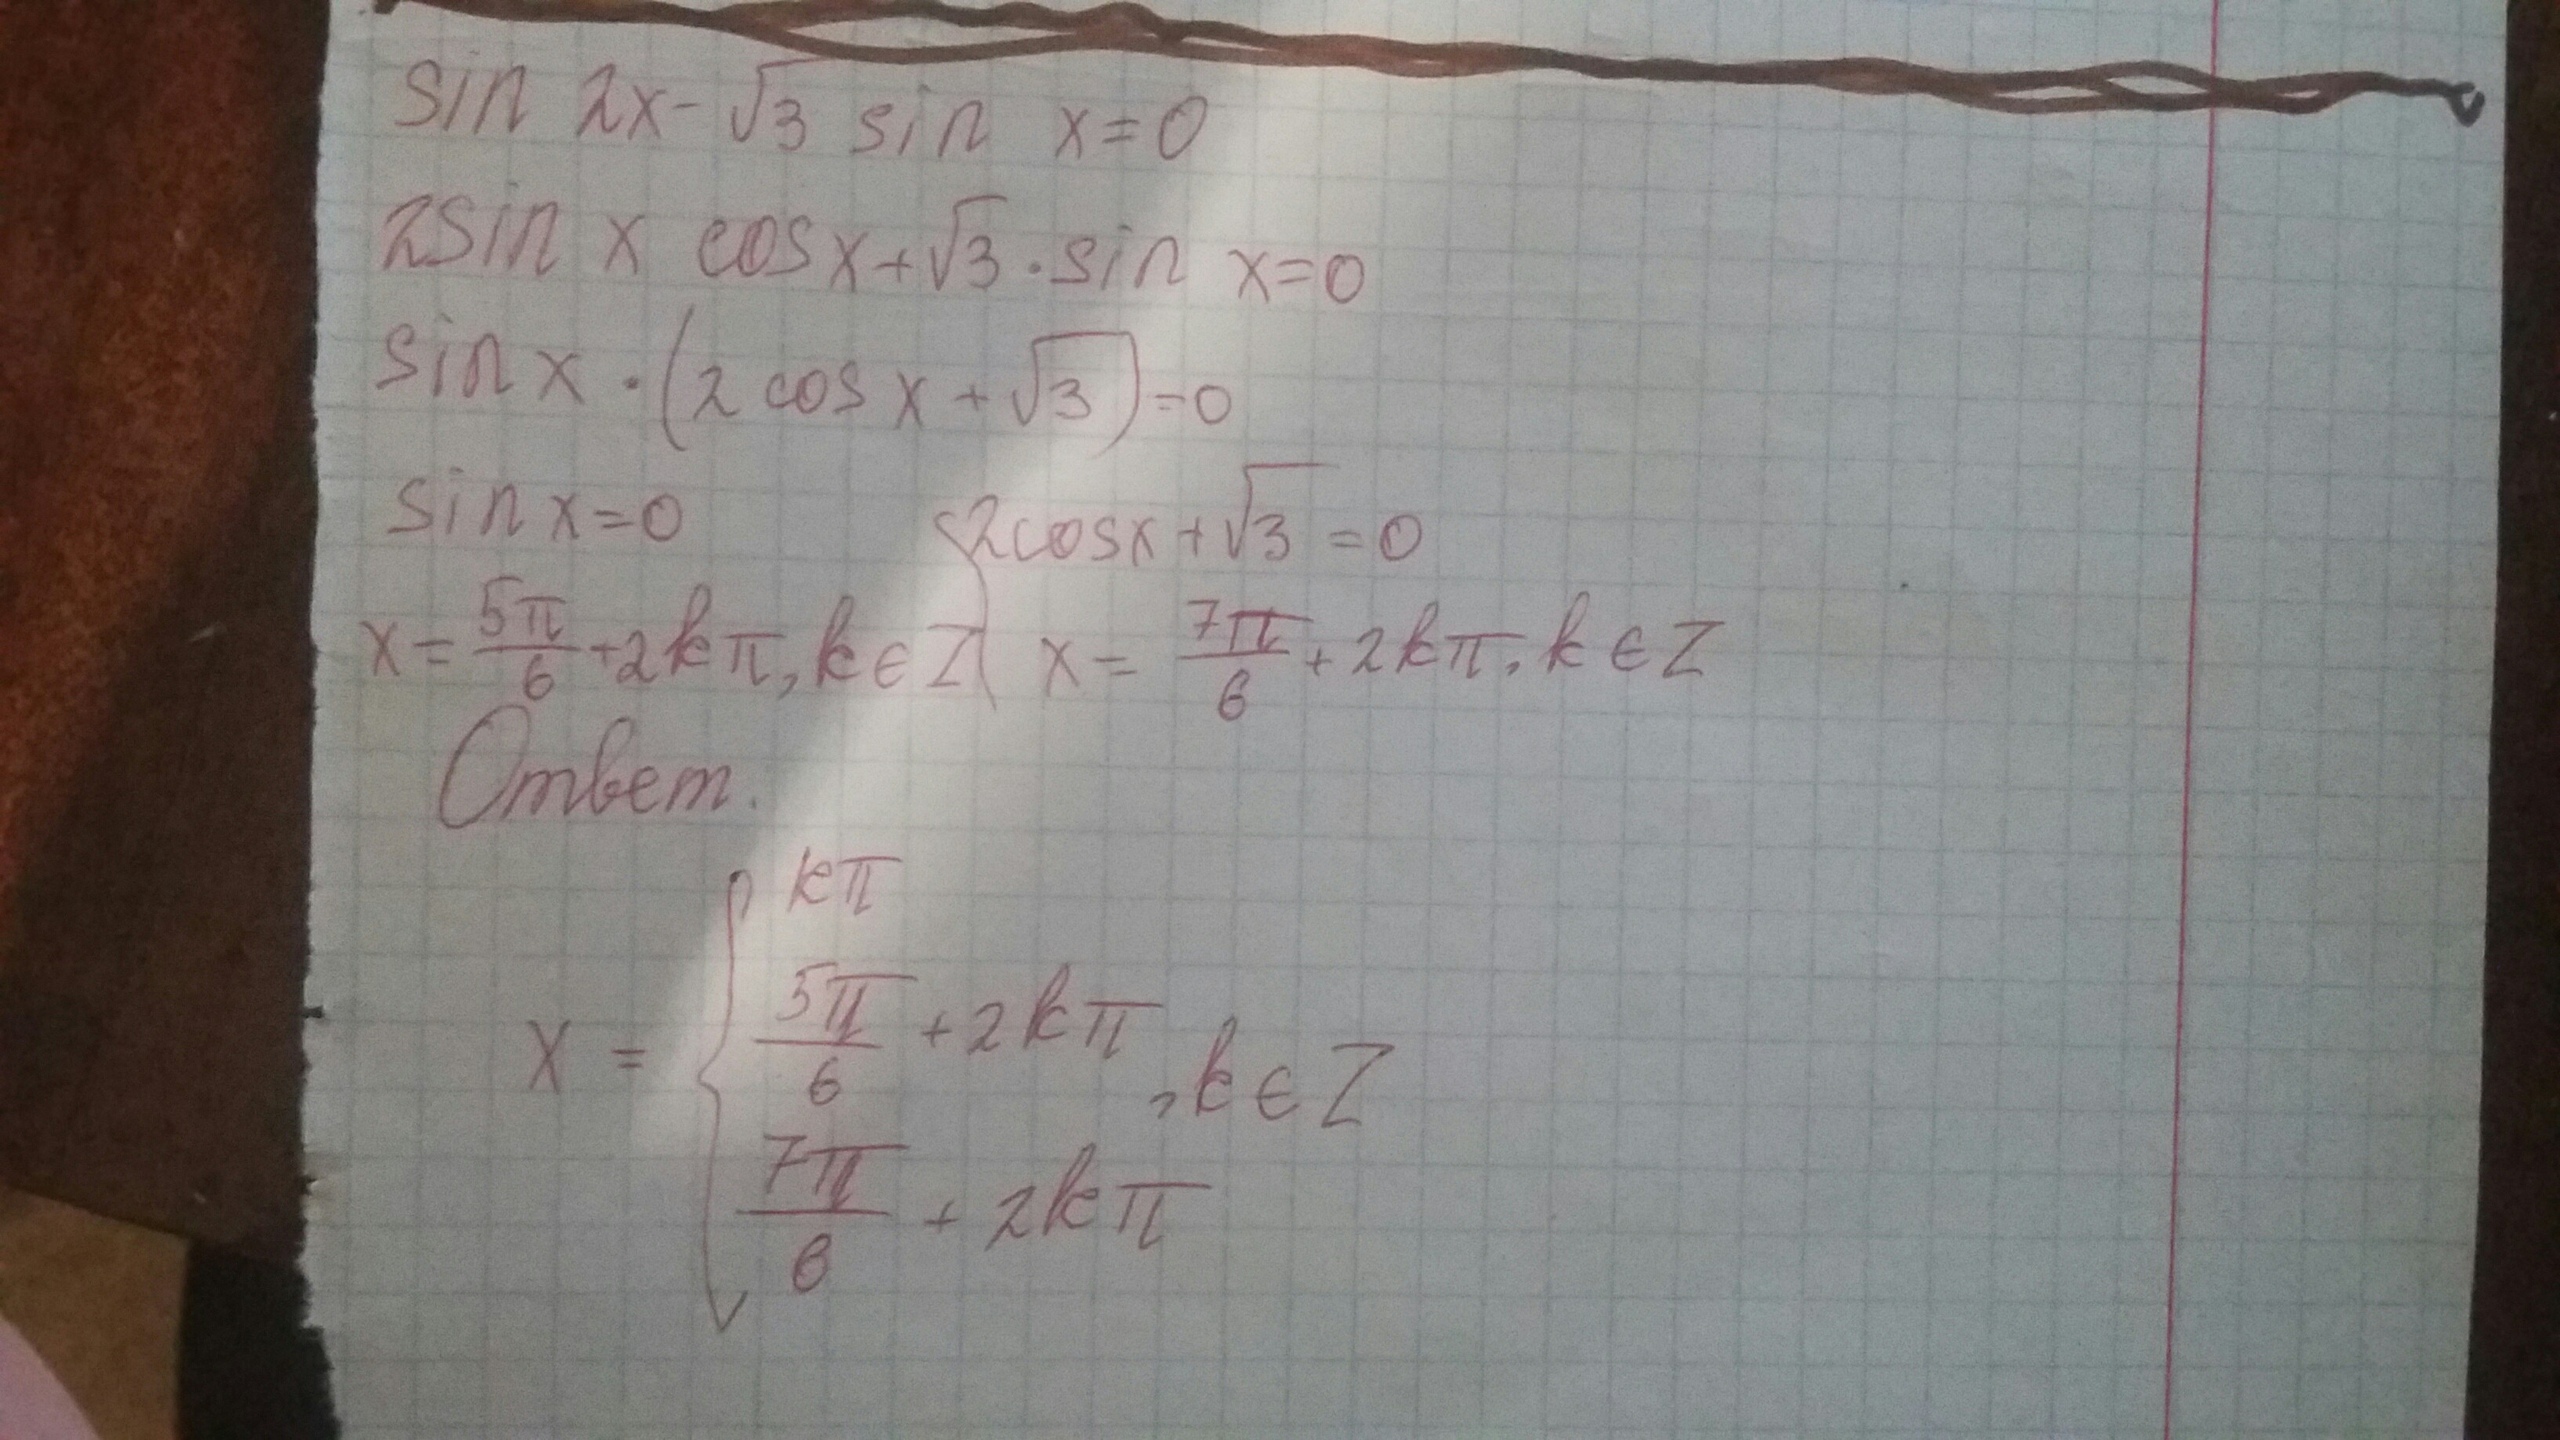 sin 2x - √3 sin x = 0
2 sin x cos x + √3 · sin x = 0
sin x · (2 cos x + √3) = 0
sin x = 0 2 cos x + √3 = 0
x = 5π/6 + 2kπ, k ∈ Z x = 7π/6 + 2kπ, k ∈ Z
Ответ.
kπ
5π/6 + 2kπ
x = { , k ∈ Z
7π/6 + 2kπ